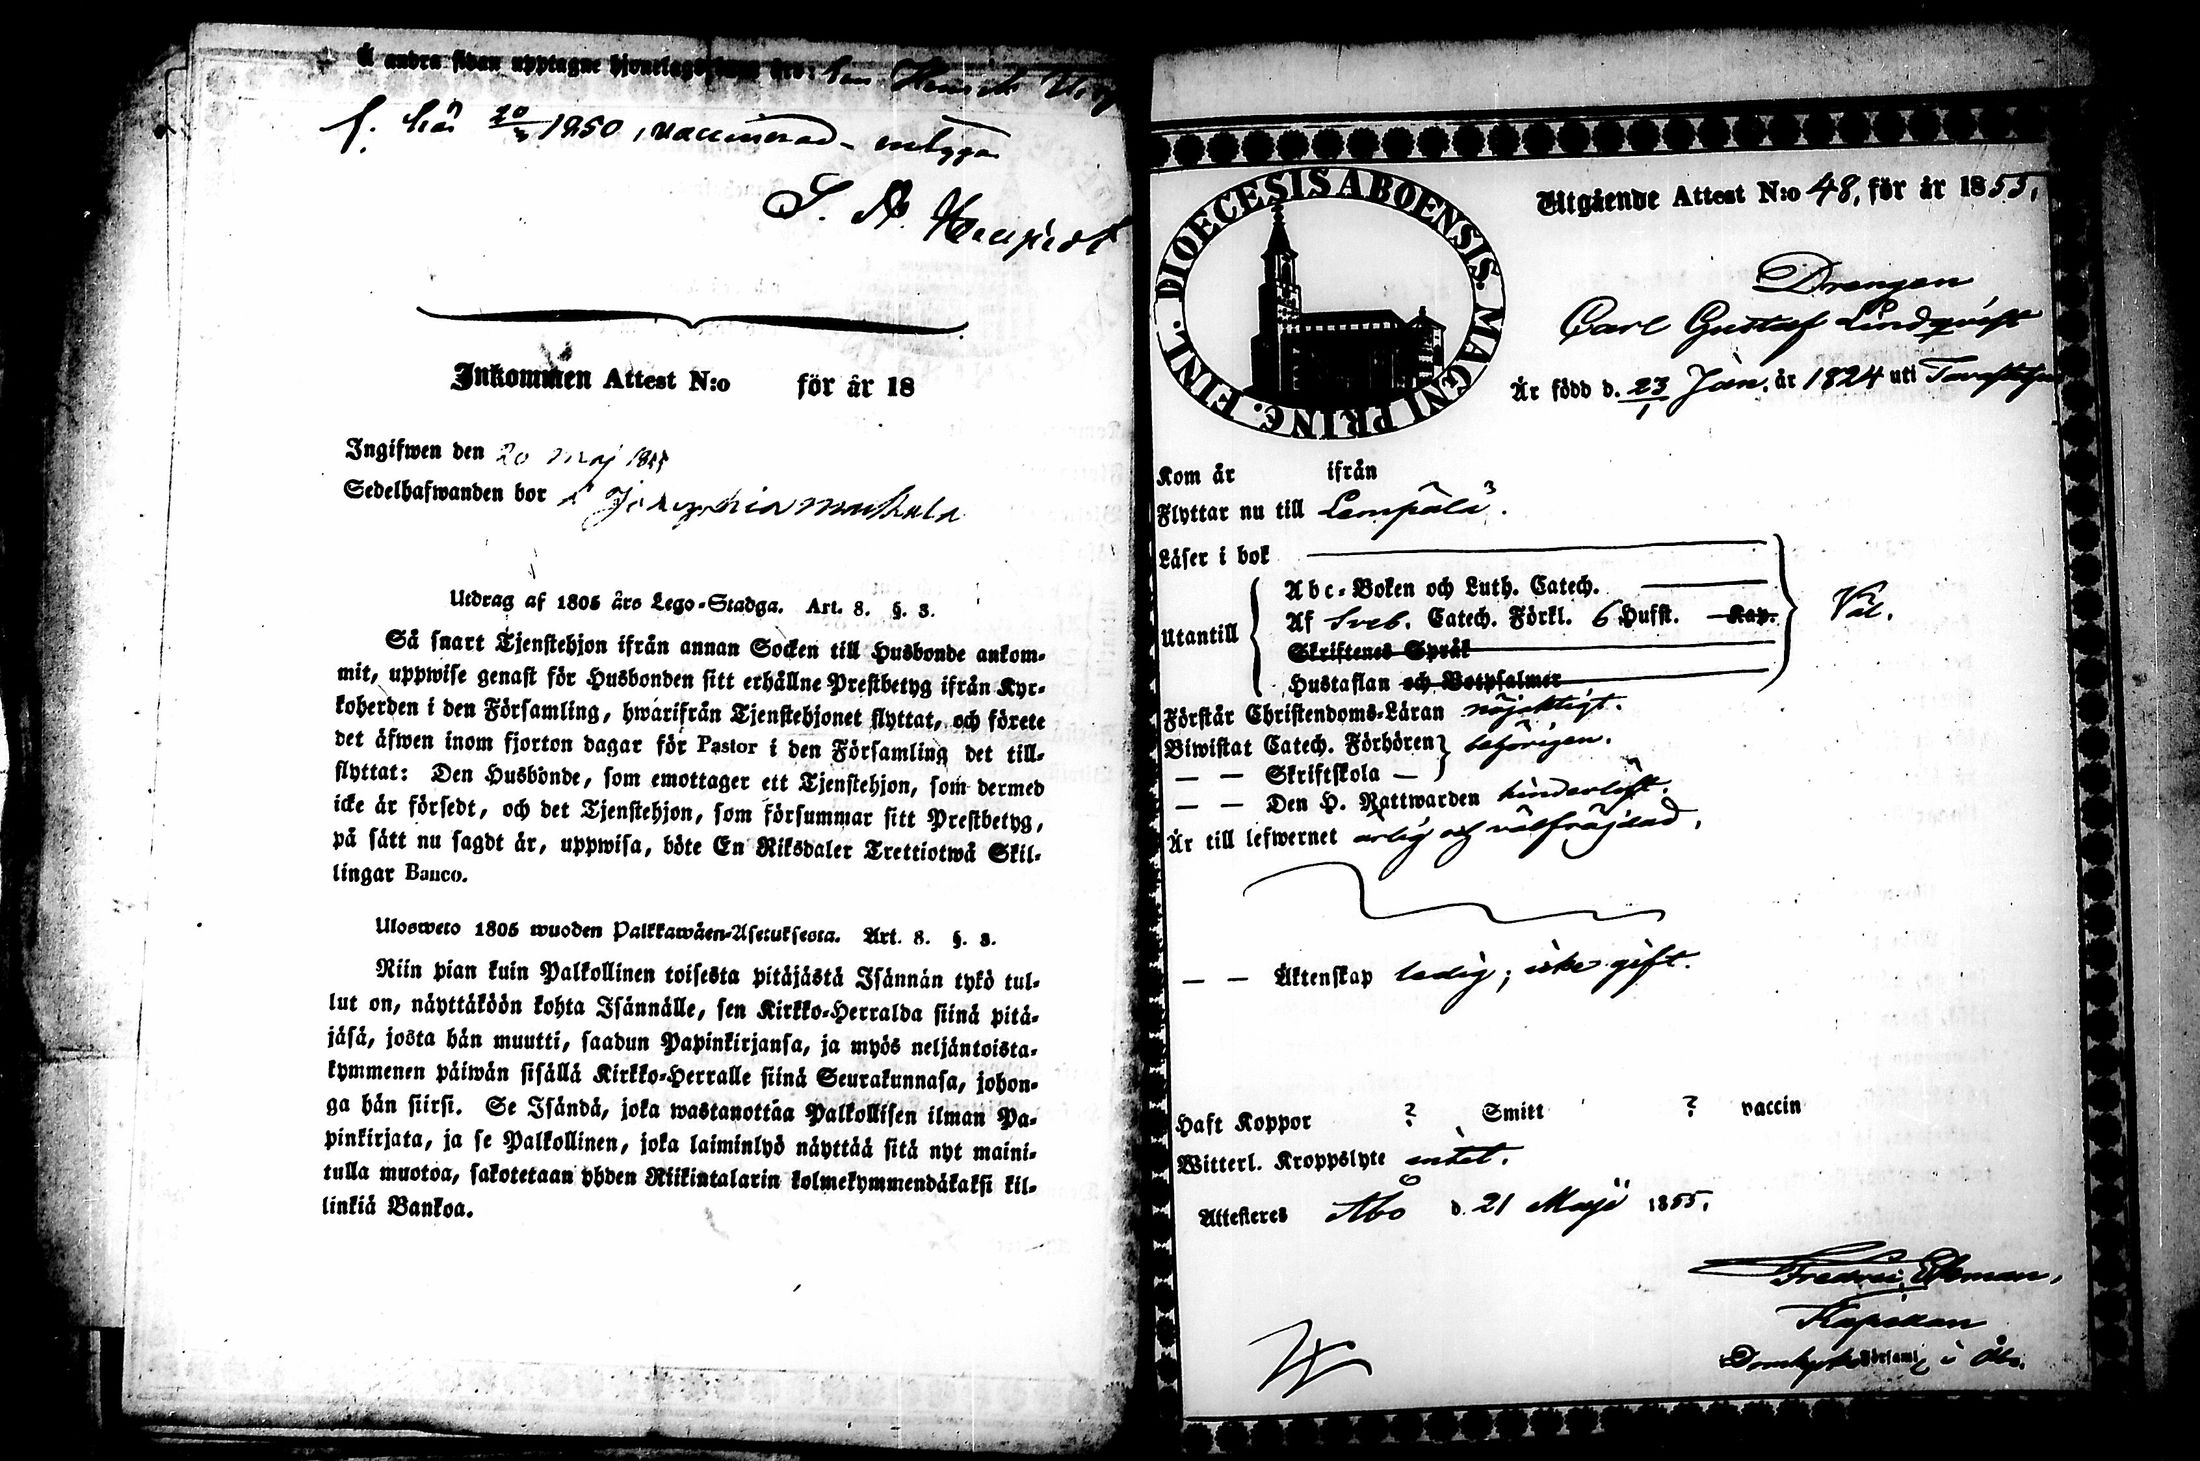 Å andra sidan upptagne hjonelags
f. här 20/3 1850, vaccinerad, intygar
Inkommen Attest N:o för år 18
Ingifwen den 20 maj 1855
Sedelhafwanden bor
Utdrag af 1805 års Lego-Stadga. Art. 8. §. 3.
Så snart Tjenstehjon ifrån annan Socken till Husbonde ankom-
mit, uppwise genast för Husbonden sitt erhållne Prestbetyg ifrån Kyr-
koherden i den Församling, hwarifrån Tjenstehjonet flyttat, och förete
det äfwen inom fjorton dagar för Pastor i den Församling det till-
flyttat: Den Husbonde, som emottager ett Tjenstehjon, som dermed
icke är försedt, och det Tjenstehjon, som försummar sitt Prestbetyg,
på sätt nu sagdt är, uppwisa, böte En Riksdaler Trettiotwå Skil-
lingar Banco.
Ulosweto 1805 wuoden Palkkawäen-Asetuksesta. Art. 8. §. 3.
Niin pian kuin Palkollinen toisesta pitäjästä Isännän tykö tul-
lut on, näyttäköön kohta Isännälle, sen Kirkko-Herralda siinä pitä-
jäsä, josta hän muutti, saadun Papinkirjansa, ja myös neljäntoista-
kymmenen päiwän sisällä Kirkko-Herralle siinä Seurakunnasa, johon-
ga hän siirsi. Se Isändä, joka wastanottaa Palkollisen ilman Pa-
pinkirjata, ja se Palkollinen, joka laiminlyö näyttää sitä nyt maini-
tulla muotoa, sakotetaan yhden Riikintalarin kolmekymmendäkaksi kil-
linkiä Bankoa.
FINL. DIOECESIS ABOENSIS. MAGNI PRINC.
Utgående Attest N:o 48, för år 1855.
Drengen
Carl Gustaf Lindqvist
Är född d. 23/1 Jan. år 1824 uti Tavastehus
Kom år ifrån
Flyttar nu till Lempälä.
Läser i bok
Abc-Boken och Luth. Catech.
Utantill Af Sveb. Catech. Förkl. 6 Hufst. Kap. Väl.
Skriftenes Språk
Hustaflan och Botpsalmer
Förstår Christendoms-Läran nöjaktigt.
Biwistat Catech. Förhören behörigen.
— — Skriftskola —
— — Den H. Nattwarden hinderlöst.
Är till lefwernet ärlig och välfräjdad.
— — Äktenskap ledig; icke gift.
Haft Koppor ? Smitt ? vaccin
Witterl. Kroppslyte intet.
Attesteres Åbo d. 21 Maji 1855.
Fredric Ekman,
Kapellan
Domkyrko Församl. i Åbo.